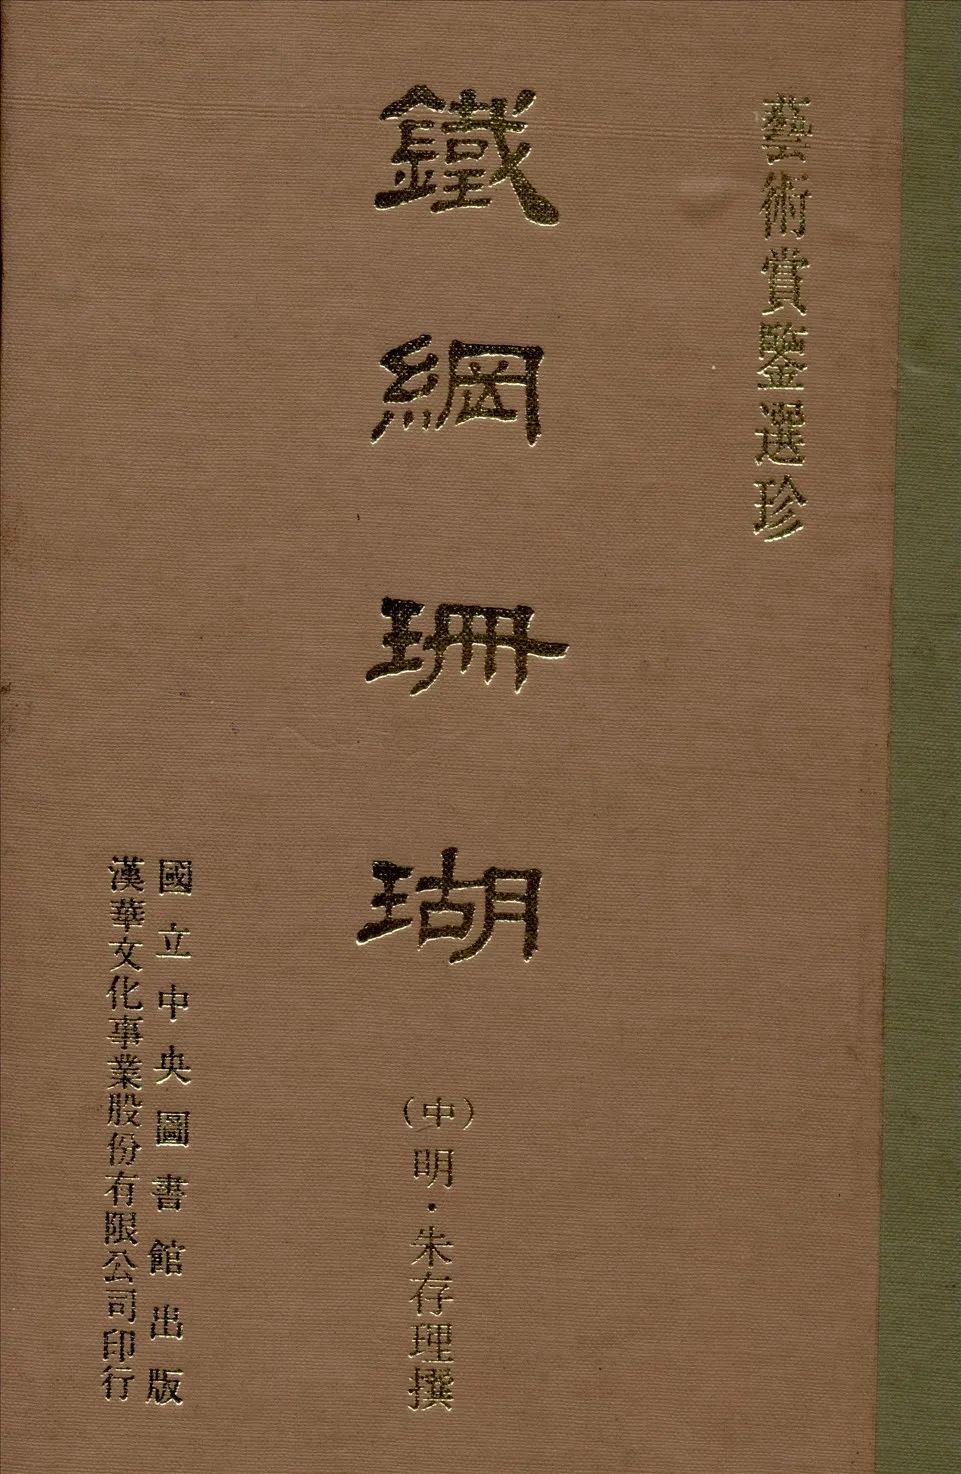 藝術賞鑒選珍
鐵網珊瑚
（中）明・朱存理撰
國立中央圖書館出版
漢華文化事業股份有限公司印行